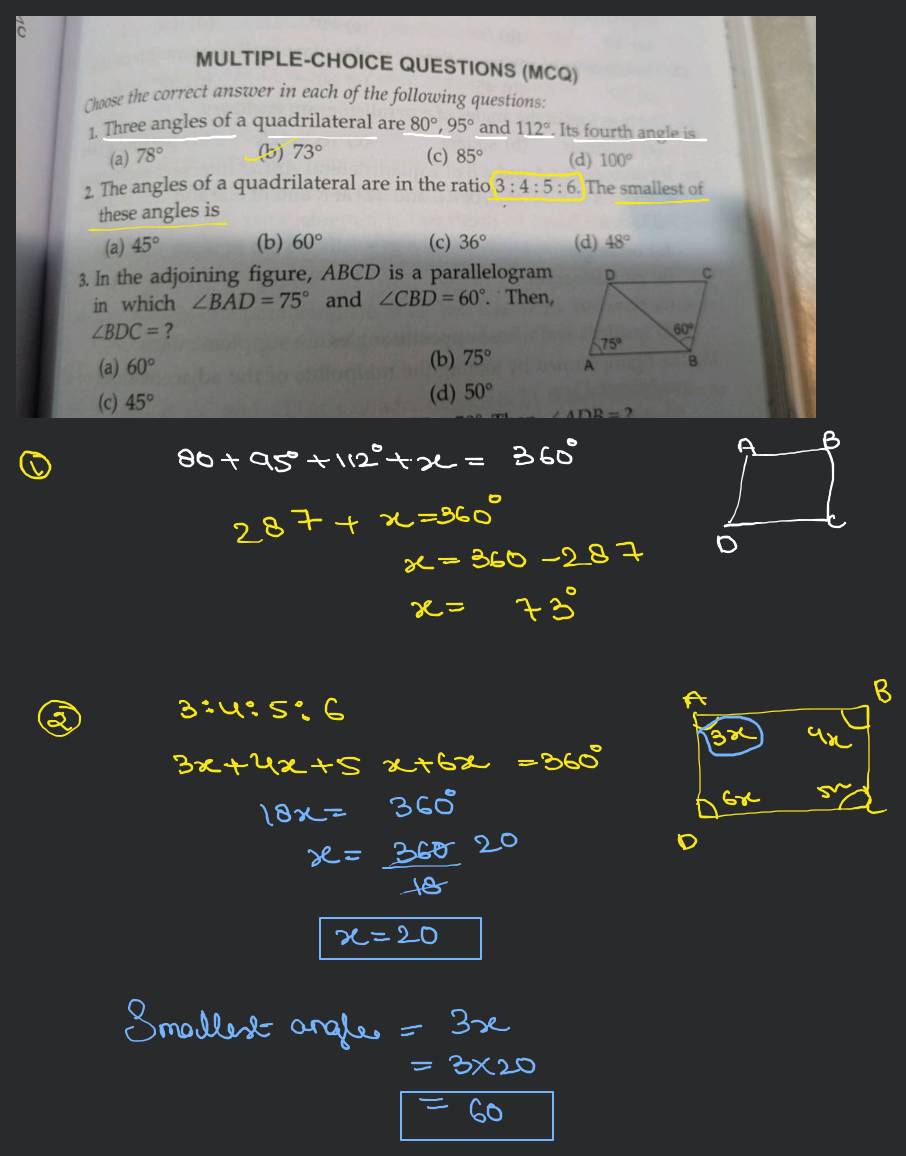 MULTIPLE-CHOICE QUESTIONS (MCQ)
Choose the correct answer in each of the following questions:
1. Three angles of a quadrilateral are 80°, 95° and 112°. Its fourth angle is
(a) 78° (b) 73° (c) 85° (d) 100°
2. The angles of a quadrilateral are in the ratio 3 : 4 : 5 : 6. The smallest of
these angles is
(a) 45° (b) 60° (c) 36° (d) 48°
3. In the adjoining figure, ABCD is a parallelogram
in which ∠BAD = 75° and ∠CBD = 60°. Then,
∠BDC = ?
(a) 60° (b) 75°
(c) 45° (d) 50°
D C
60°
75°
A B
∠ADB = ?
① 80 + 95° + 112° + x = 360°
A B
287 + x = 360°
D C
x = 360 - 287
x = 73°
② 3:4:5:6
A B
3x 4x
3x+4x+5x+6x = 360°
6x 5x
D C
18x = 360°
x = 360/18 20
x = 20
Smallest angle = 3x
= 3×20
= 60